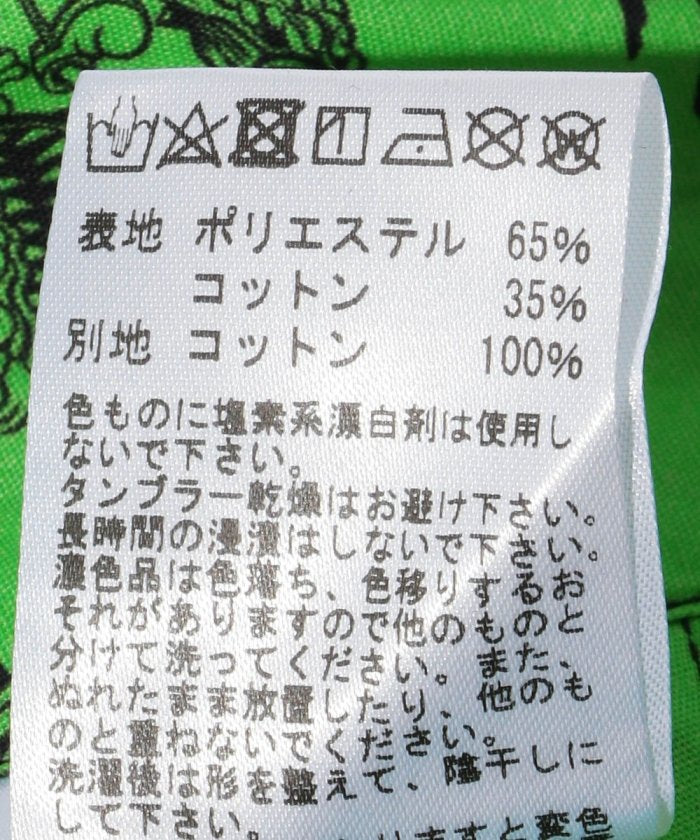 表地 ポリエステル 65%
コットン 35%
別地 コットン 100%
色ものに塩素系漂白剤は使用し
ないで下さい。
タンブラー乾燥はお避け下さい。
長時間の浸漬はしないで下さい。
濃色品は色落ち、色移りするお
それがありますので他のものと
分けて洗ってください。また、
ぬれたまま放置したり、他のも
のと重ねないでください。
洗濯後は形を整えて、陰干しに
して下さい。
りますと変色